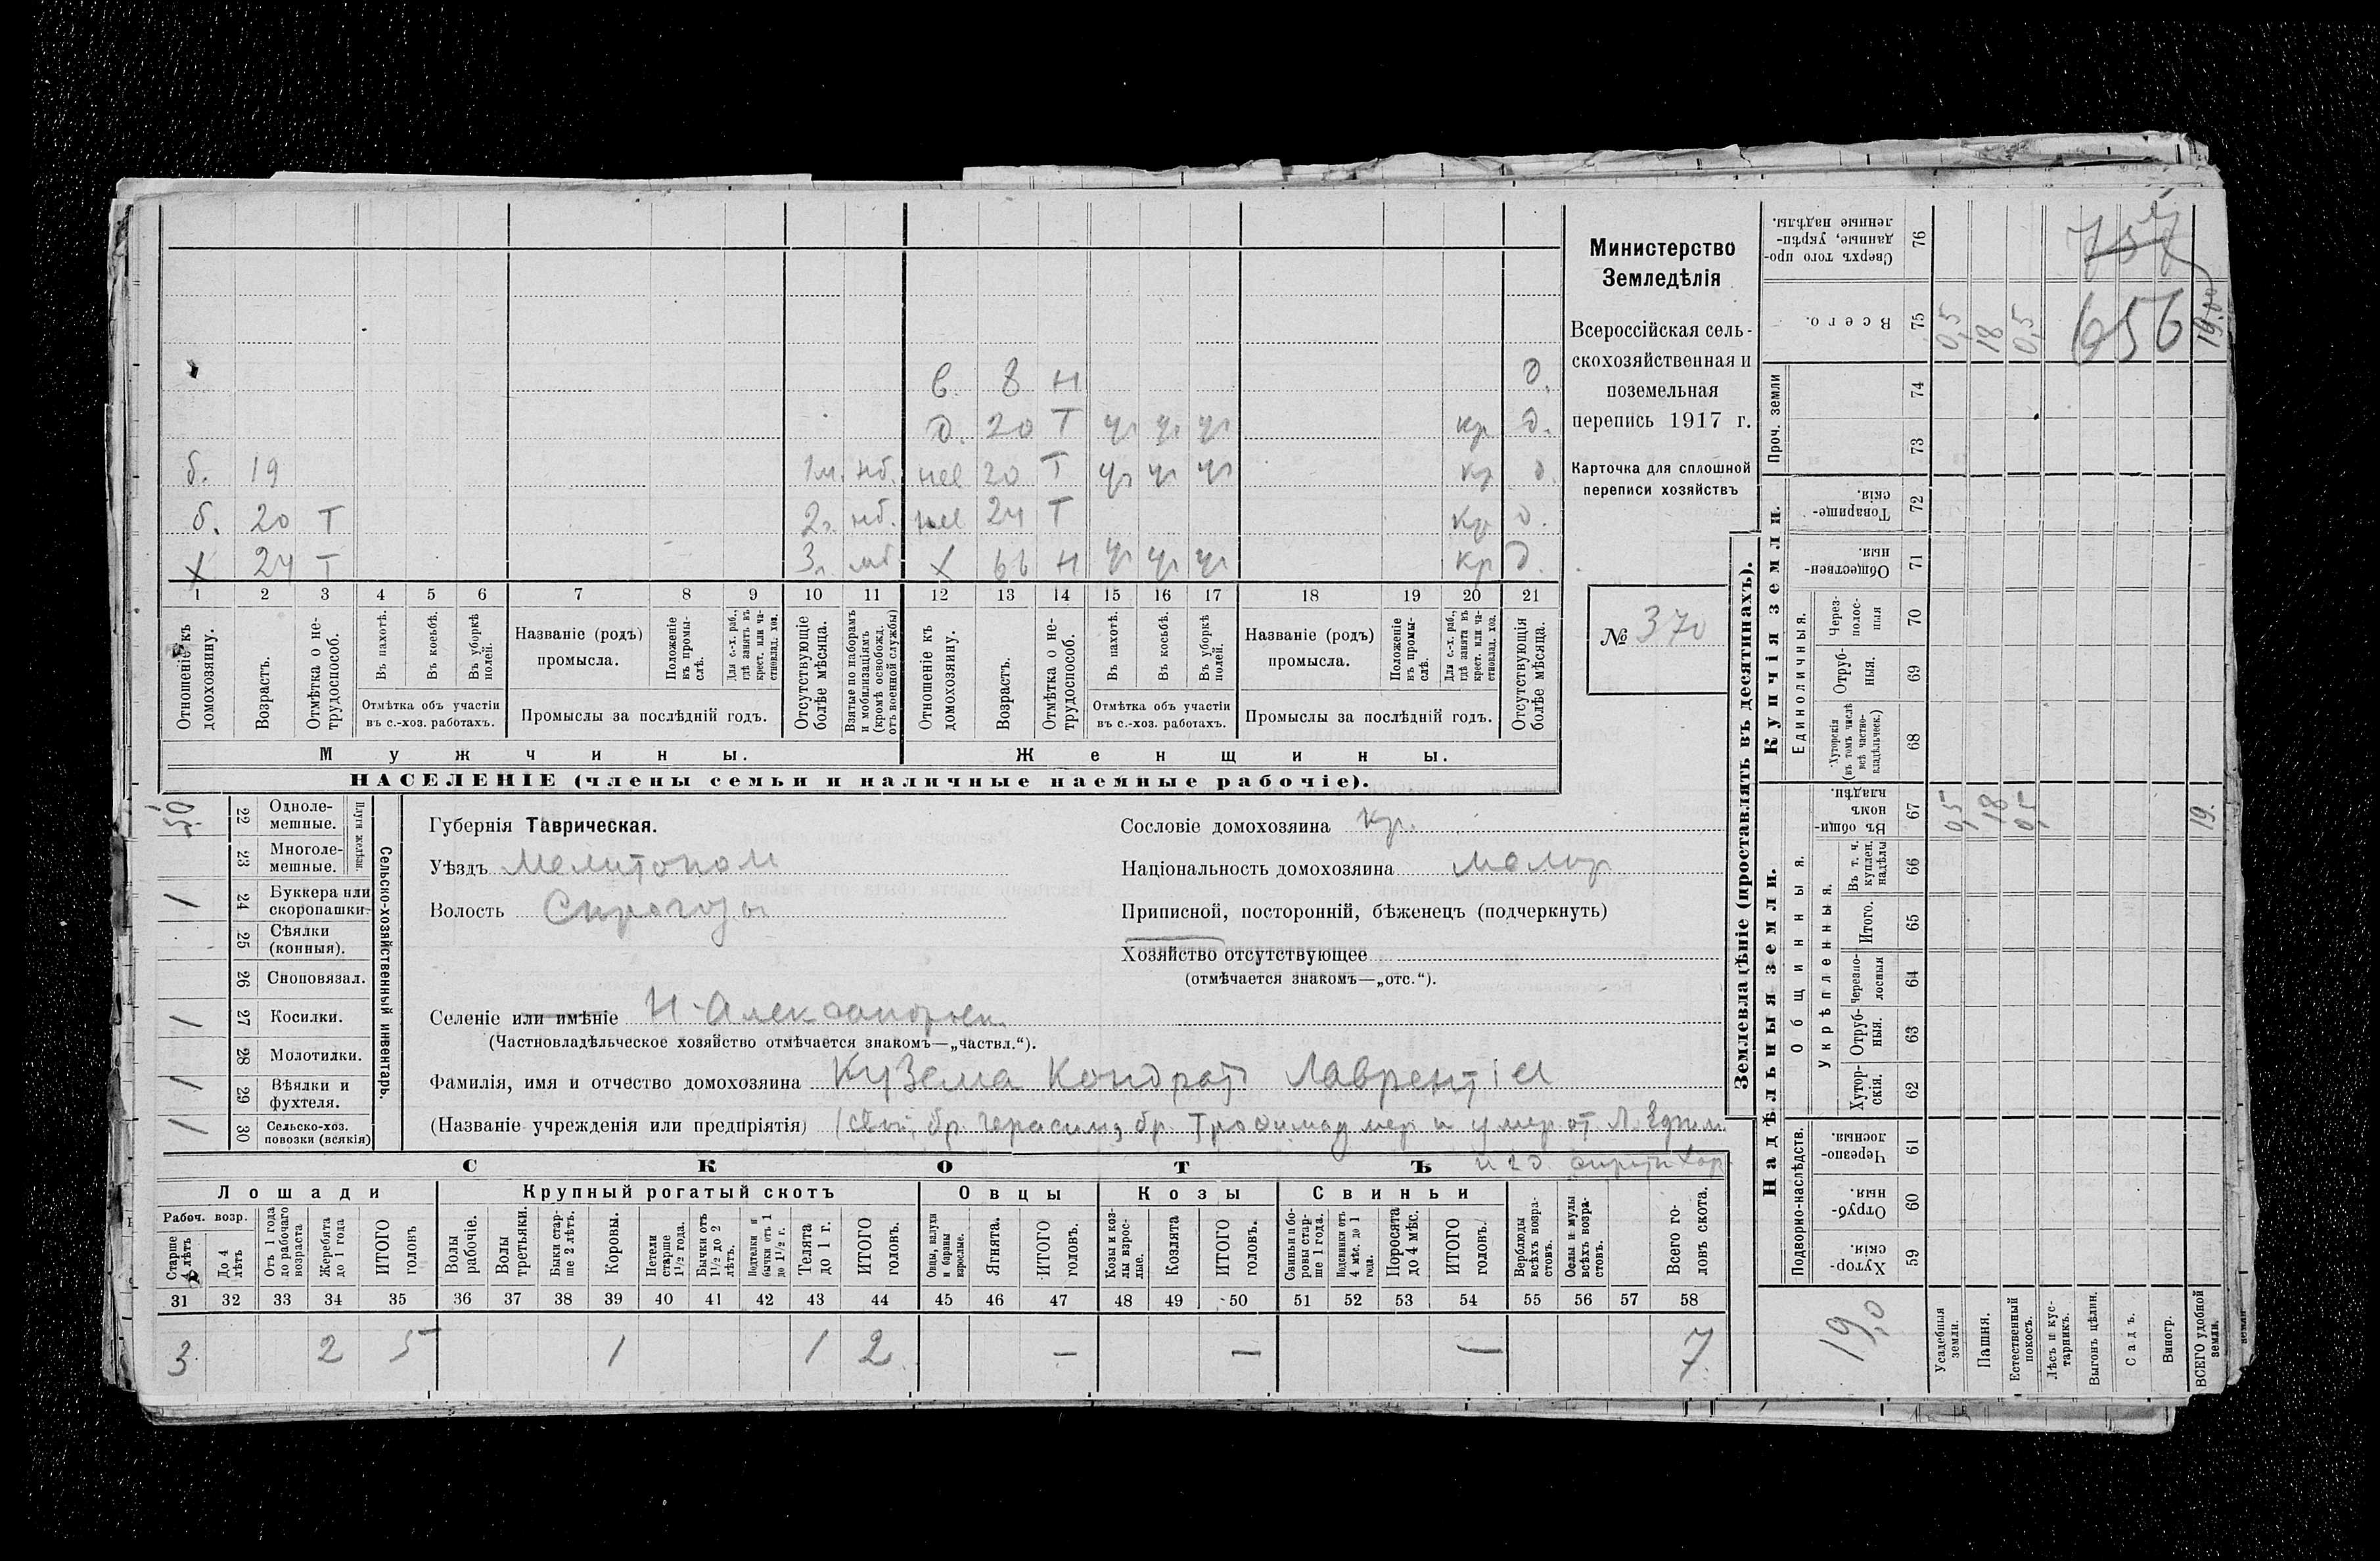 в. 8 н д.
д. 20 Т уч уч уч кр д.
б. 19 1м. нб. нев 20 Т уч уч уч кр д.
б. 20 Т 2г. нб. нев 24 Т кр д.
х 24 Т 3г. мб х 66 н уч уч уч кр д.
1 2 3 4 5 6 7 8 9 10 11 12 13 14 15 16 17 18 19 20 21
Отношеніе къ домохозяину.
Возрастъ.
Отмѣтка о нетрудоспособ.
Въ пахотѣ.
Въ косьбѣ.
Въ уборкѣ полей.
Отмѣтка объ участіи въ с.-хоз. работахъ.
Названіе (родъ) промысла.
Положеніе въ промыслѣ.
Для с.-х. раб., гдѣ занятъ въ крест. или частновлад. хоз.
Промыслы за послѣдній годъ.
Отсутствующіе болѣе мѣсяца.
Взятые по наборамъ и мобилизаціямъ (кромѣ освобожд. отъ военной службы)
Отношеніе къ домохозяину.
Возрастъ.
Отмѣтка о нетрудоспособ.
Въ пахотѣ.
Въ косьбѣ.
Въ уборкѣ полей.
Отмѣтка объ участіи въ с.-хоз. работахъ.
Названіе (родъ) промысла.
Положеніе въ промыслѣ.
Для с.-х. раб., гдѣ занята въ крест. или частновлад. хоз.
Промыслы за послѣдній годъ.
Отсутствующія болѣе мѣсяца.
Мужчины.
Женщины.
НАСЕЛЕНІЕ (члены семьи и наличные наемные рабочіе).
Министерство
Земледѣлія
Всероссійская сель-
скохозяйственная и
поземельная
перепись 1917 г.
Карточка для сплошной
переписи хозяйствъ
№ 370
22 Одноле-мешные.
23 Многоле-мешные.
Плуги желѣзн.
1 24 Буккера или скоропашки
25 Сѣялки (конныя).
26 Сноповязал.
1 27 Косилки.
28 Молотилки.
1 29 Вѣялки и фухтеля.
1 30 Сельско-хоз. повозки (всякія)
Сельско-хозяйственный инвентарь.
Губернія Таврическая.
Уѣздъ Мелитопол
Волость Сирогозы
Сословіе домохозяина кр.
Національность домохозяина малор
Приписной, посторонній, бѣженецъ (подчеркнуть)
Хозяйство отсутствующее
(отмѣчается знакомъ—„отс.“).
Селеніе или имѣніе Н-Александровк
(Частновладѣльческое хозяйство отмѣчается знакомъ—„частвл.“).
Фамилія, имя и отчество домохозяина Кузема Кондрат Лаврентіев
(Названіе учрежденія или предпріятія) бр. Герасим, бр. Трофима умер и умер от.
СКОТЪ
Лошади
Крупный рогатый скотъ
Овцы
Козы
Свиньи
Рабоч. возр.
Старше 4 лѣтъ
До 4 лѣтъ
Отъ 1 года до рабочаго возраста
Жеребята до 1 года
ИТОГО головъ
Волы рабочіе.
Волы третьяки.
Быки старше 2 лѣтъ.
Коровы.
Нетели старше 1½ года.
Бычки отъ 1½ до 2 лѣтъ.
Подтелки и бычки отъ 1 до 1½ г.
Телята до 1 г.
ИТОГО головъ.
Овцы, валухи и бараны взрослые.
Ягнята.
ИТОГО головъ.
Козы и козлы взрослые.
Козлята
ИТОГО головъ.
Свиньи и боровы старше 1 года.
Подсвинки отъ 4 мѣс. до 1 года.
Поросята до 4 мѣс.
ИТОГО головъ.
Верблюды всѣхъ возрастовъ.
Ослы и мулы всѣхъ возрастовъ.
Всего головъ скота.
31 32 33 34 35 36 37 38 39 40 41 42 43 44 45 46 47 48 49 50 51 52 53 54 55 56 57 58
3 2 5 1 1 2 — — — 7
Землевладѣніе (проставлять въ десятинахъ).
Купчія земли.
Надѣльныя земли.
Сверхъ того проданные, укрѣпленные надѣлы. 76
Всего. 75 0,5 18 0,5 19,0
757
656
Проч. земли 74 73
Товарищескія. 72
Общественныя. 71
Единоличныя.
Черезполосныя 70
Отрубныя. 69
Хуторскія (въ томъ числѣ всѣ частновладѣльческ.) 68
Общинныя.
Въ общинномъ владѣн. 67 0,5 18 0,5 19.
Укрѣпленныя.
Въ т. ч. куплен. надѣлы 66
Итого. 65
Черезполосныя 64
Отрубныя. 63
Хуторскія. 62
Подворно-наслѣдств.
Черезполосныя. 61
Отрубныя. 60
Хуторскія. 59
19,0
Усадебныя земли.
Пашня.
Естественный покосъ.
Лѣсъ и кустарникъ.
Выгонъ цѣлин.
Садъ.
Виногр.
ВСЕГО удобной земли.